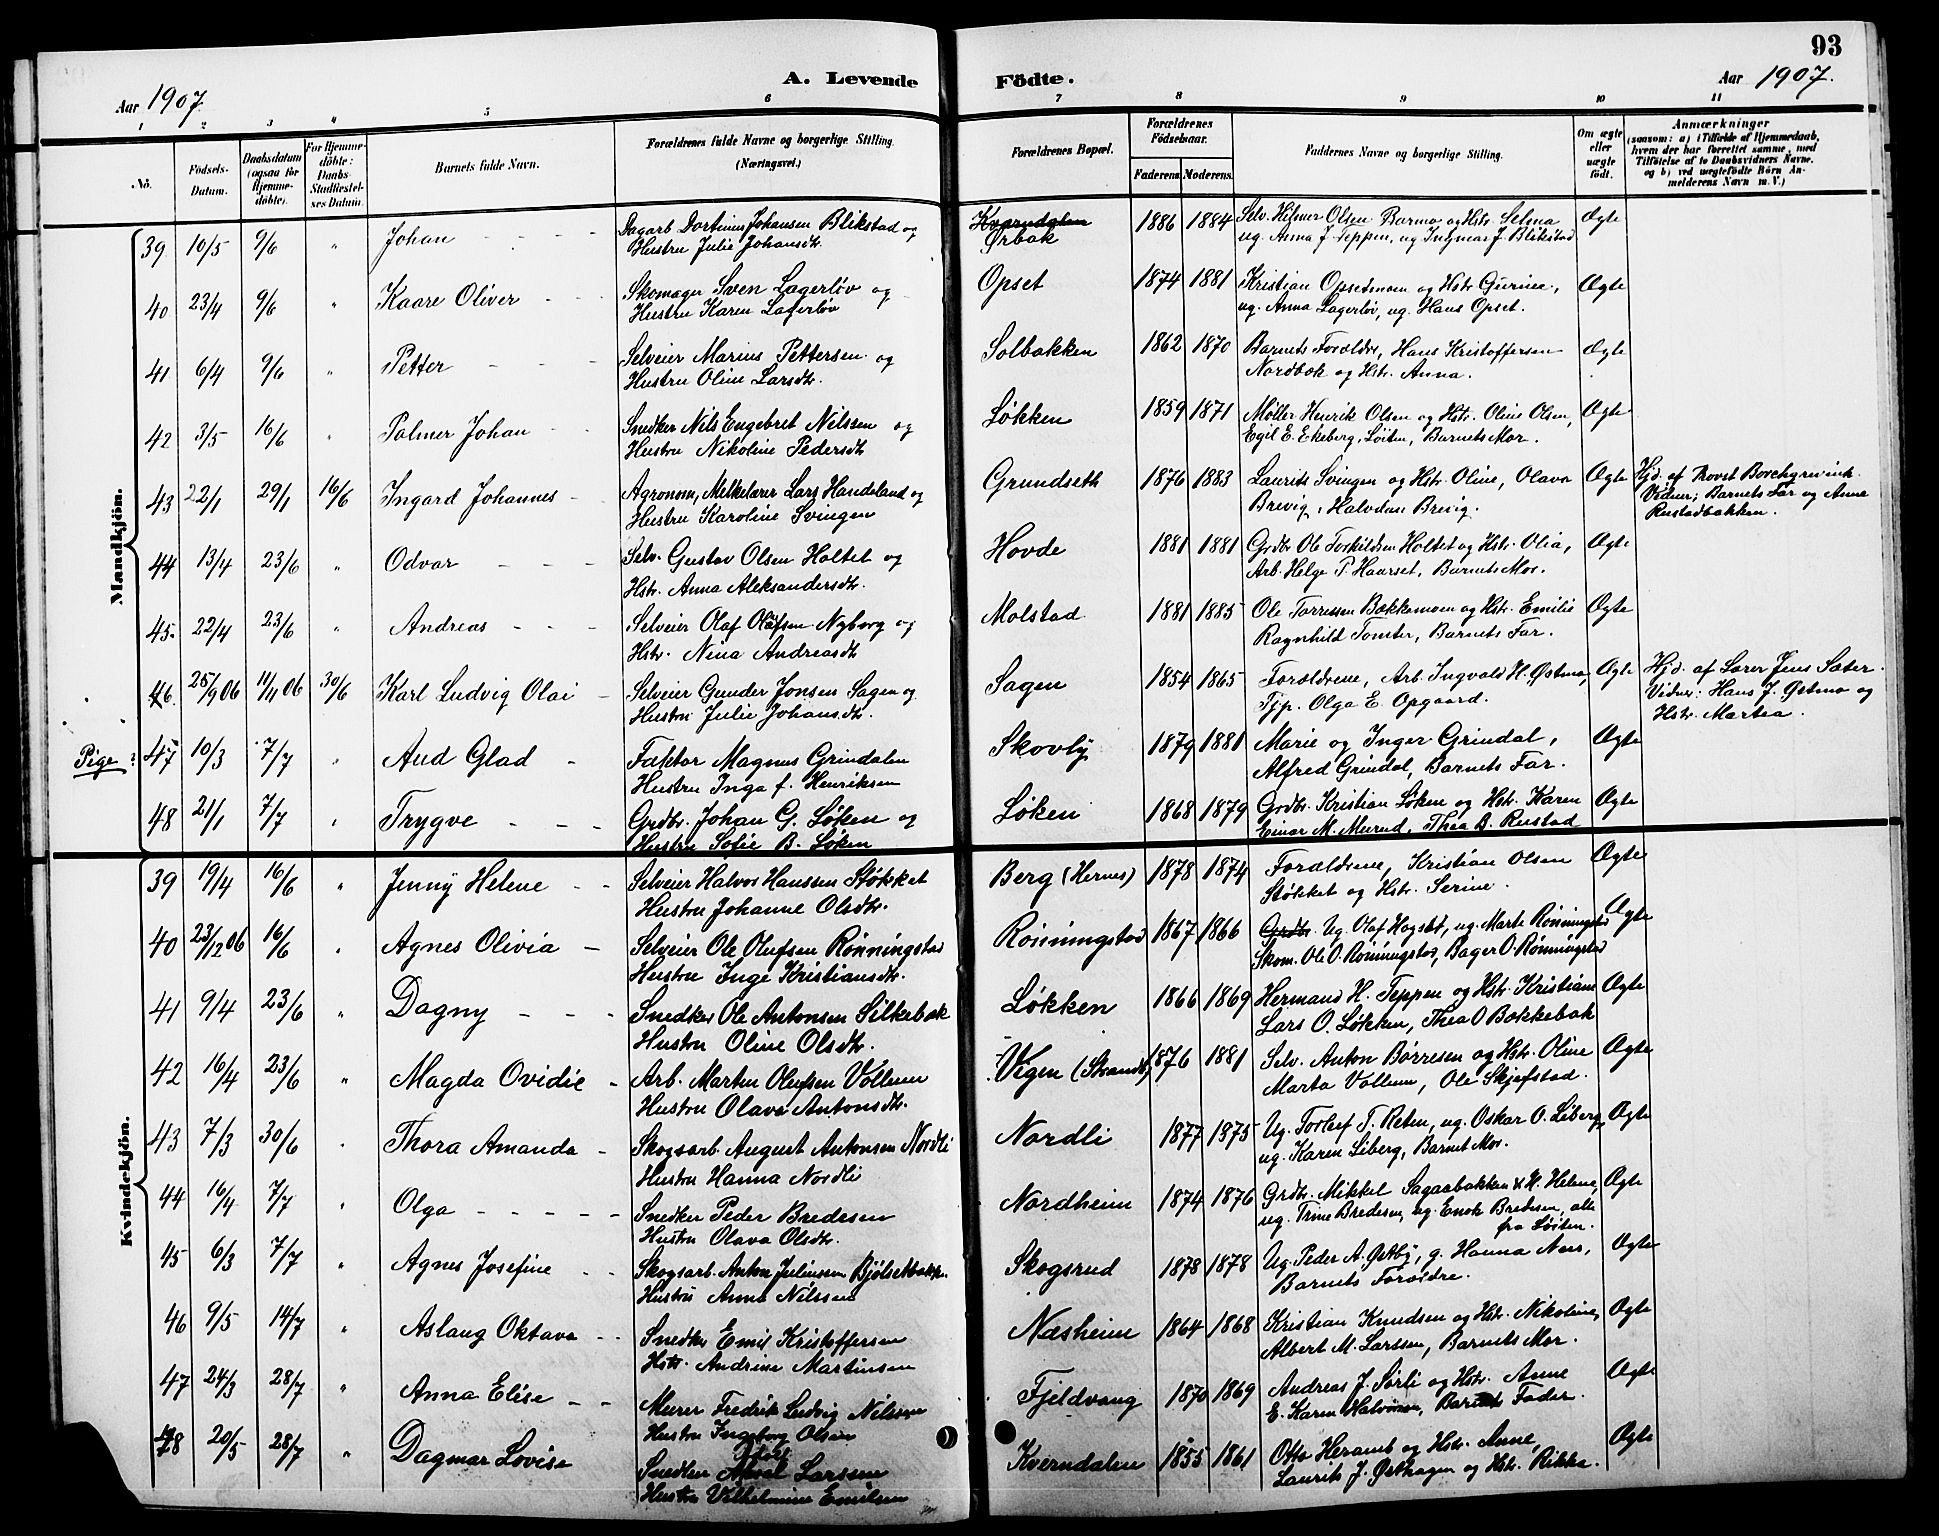 93
A. Levende Födte.
Aar 1907. Aar 1907.
1 2 3 4 5 6 7 8 9 10 11
No.
Födsels-Datum.
Daabsdatum (ogsaa for Hjemme-döbte).
For Hjemme-döbte: Daabs-Stadfæstel-ses Datum.
Barnets fulde Navn.
Forældrenes fulde Navne og borgerlige Stilling. (Næringsvei.)
Forældrenes Bopæl.
Forældrenes Födselsaar.
Faderens Moderens
Faddernes Navne og borgerlige Stilling.
Om ægte eller uægte födt.
Anmærkninger
(saasom: a) i Tilfælde af Hjemmedaab, hvem der har forrettet samme, med Tilföielse af to Daabsvidners Navne. og b) ved uægtefödte Börn An-melderens Navn m. V.)
Mandkjön.
39 10/5 9/6 " Johan Dagarb Dortinus Johansen Blikstad og Kverndalen 1886 1884 Selv. Hilmer Olsen Barmo og Hstr. Selma Ægte
Hustru Julie Johansdtr. Ørbak ug. Anna J. Teppen, ug Ingmar J. Blikstad
40 23/4 9/6 " Kaare Oliver Skomager Sven Lagerløv og Opset 1874 1881 Kristian Opsetmoen og Hstr Gurine, Ægte
Hustru Karen Lagerløv ug. Anna Lagerløv, ug. Hans Opset.
41 6/4 9/6 " Petter Selveier Marius Pettersen og Solbakken 1862 1870 Barnets Forældre, Hans Kristoffersen Ægte
Hustru Oline Larsdtr. Nordbak og Hstr. Anna.
42 3/5 16/6 " Palmer Johan Snedker Nils Engebret Nilssen og Løkken 1859 1871 Møller Henrik Olsen og Hstr. Oline Olsen, Ægte
Hustru Nikoline Pedersdtr Egil E. Ekeberg, Løiten, Barnets Mor.
43 22/1 29/1 16/6 Ingard Johannes Agronom, Melkelærer Lars Handeland og Grundseth 1876 1883 Laurits Svingen og Hstr. Oline, Olava Ægte Hjd. af Provst Borchgrevink.
Hustru Karoline Svingen Brevig, Halvdan Brevig. Vidner; Barnets Far og Anne
Rustadbakken.
44 13/4 23/6 " Odvar Selv. Gustav Olsen Holtet og Hovde 1881 1881 Grdbr Ole Torkildsen Holtet og Hstr. Olia, Ægte
Hstr. Anna Aleksandersdtr. Arb. Helge P. Haarset, Barnets Mor.
45. 22/4 23/6 " Andreas Selveier Olaf Olafsen Nyborg og Molstad 1881 1885 Ole Torressen Bækkemoen og Hstr. Emilie Ægte
Hstr. Nina Andreasdtr Ragnhild Tomter, Barnets Far.
46. 25/9 06 11/11 06 30/6 Karl Ludvig Olai Selveier Gunder Jonsen Sagen og Sagen 1854 1865 Forældrene, Arb. Ingvald H. Østmo, Ægte Hjd. af Lærer Jens Sæter.
Hustru Julie Johansdtr. Tjp. Olga E. Opgaard. Vidner: Hans J. Østmo og
Hstr. Martea.
Pige? 47 10/3 7/7 " Aud Glad Faktor Magnus Grindalen Skovly 1879 1881 Marie og Inger Grindal, Ægte
Hustru Inga f. Henriksen Alfred Grindal, Barnets Far.
48 21/1 7/7 " Trygve Grdbr. Johan G. Løken og Løken 1868 1879 Grdbr. Kristian Løken og Hstr. Karen Ægte
Hustru Sofie B. Løken Einar M. Murud, Thea B. Rustad
Kvindekjön.
39 19/4 16/6 " Jenny Helene Selveier Halvor Hanssen Støkket Berg (Hernes) 1878 1874 Forældrene, Kristian Olsen Ægte
Hustru Johanne Olsdtr. Støkket og Hstr. Serine.
40 23/12 06 16/6 " Agnes Olivia Selveier Ole Olufsen Rønningstad Rønningstad 1867 1866 Grdbr. Ug. Olaf Hogstøt, ug. Marte Rønningstad Ægte
Hustru Inge Kristiansdtr. Skom. Ole O. Rønningstad, Bager O. Rønningstad
41 9/4 23/6 " Dagny Snedker Ole Antonsen Silkebæk Løkken 1866 1869 Hermand H. Teppen og Hstr. Kristiane Ægte
Hustru Oline Olsdtr. Lars O. Løkken, Thea O Bækkebæk
42 16/4 23/6 " Magda Ovidie Arb. Martin Olufsen Vollum Vigen (Strandb) 1876 1881 Selv. Anton Børresen og Hstr. Oline Ægte
Hustru Olava Antonsdtr. Marta Vollum, Ole Skjefstad.
43 7/3 30/6 " Thora Amanda Skogsarb. August Antonsen Nordli Nordli 1877 1875 Ug. Torleif T. Reten, ug. Oskar O. Liberg, Ægte
Hustru Hanna Nordli ug. Karen Liberg, Barnet Mor.
44 16/4 7/7 " Olga Snedker Peder Bredesen Nordheim 1874 1876 Grdbr. Mikkel Sagaabakken & H. Helene, Ægte
Hustru Olava Olsdtr. ug. Trine Bredesen, ug. Enok Bredesen, alle
fra Løiten.
45 6/3 7/7 " Agnes Josefine Skogsarb. Anton Juliussen Bjølsetbakk. Skogsrud 1878 1878 Ug. Peder A. Østby, g. Hanna Næss, Ægte
Hustru Anna Nilssen Barnets Forældre.
46 9/5 14/7 " Aslaug Oktava Snedker Emil Kristoffersen Næsheim 1864 1868 Kristian Knudsen og Hstr. Nikoline, Ægte
Hstr. Andrine Martinsen Albert M. Larssen, Barnets Mor.
47 24/3 28/7 " Anna Elise Murer Fredrik Ludvig Nilssen Fjeldvang 1870 1869 Andreas J. Sørli og Hstr. Anne Ægte
Hustru Ingeborg Olsen E. Karen Halvorsen, Barnets Fader.
48 20/5 28/7 " Dagmar Lovise Snedker Larssen Kverndalen 1855 1861 Otto Heramb og Hstr. Anne, Ægte
Hustru Vilhelmine Emilsen Laurits J. Østhagen og Hstr. Rikka.